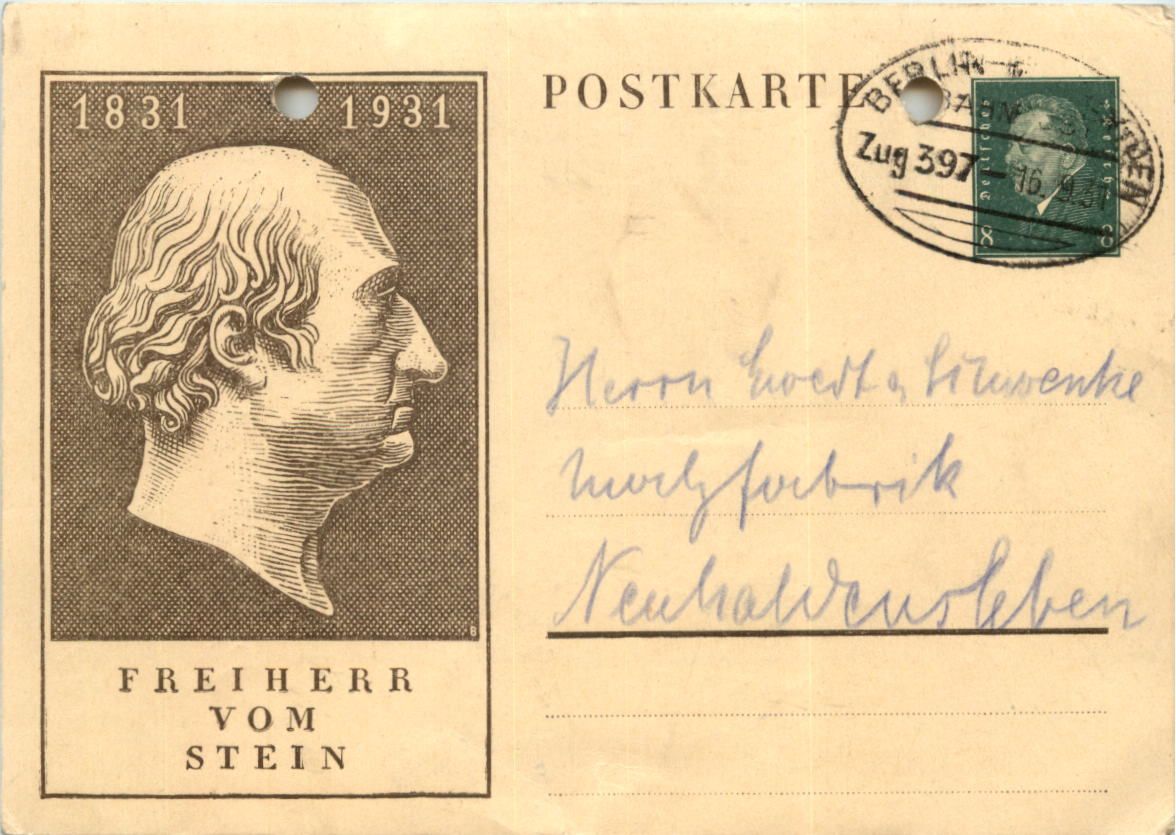 1831 1931
FREIHERR
VOM
STEIN
POSTKARTE
BERLIN
BAHNPOST
Zug 397 - 16.9.31
Deutsches Reich
8 8
Herrn
Malzfabrik
Neuhaldensleben